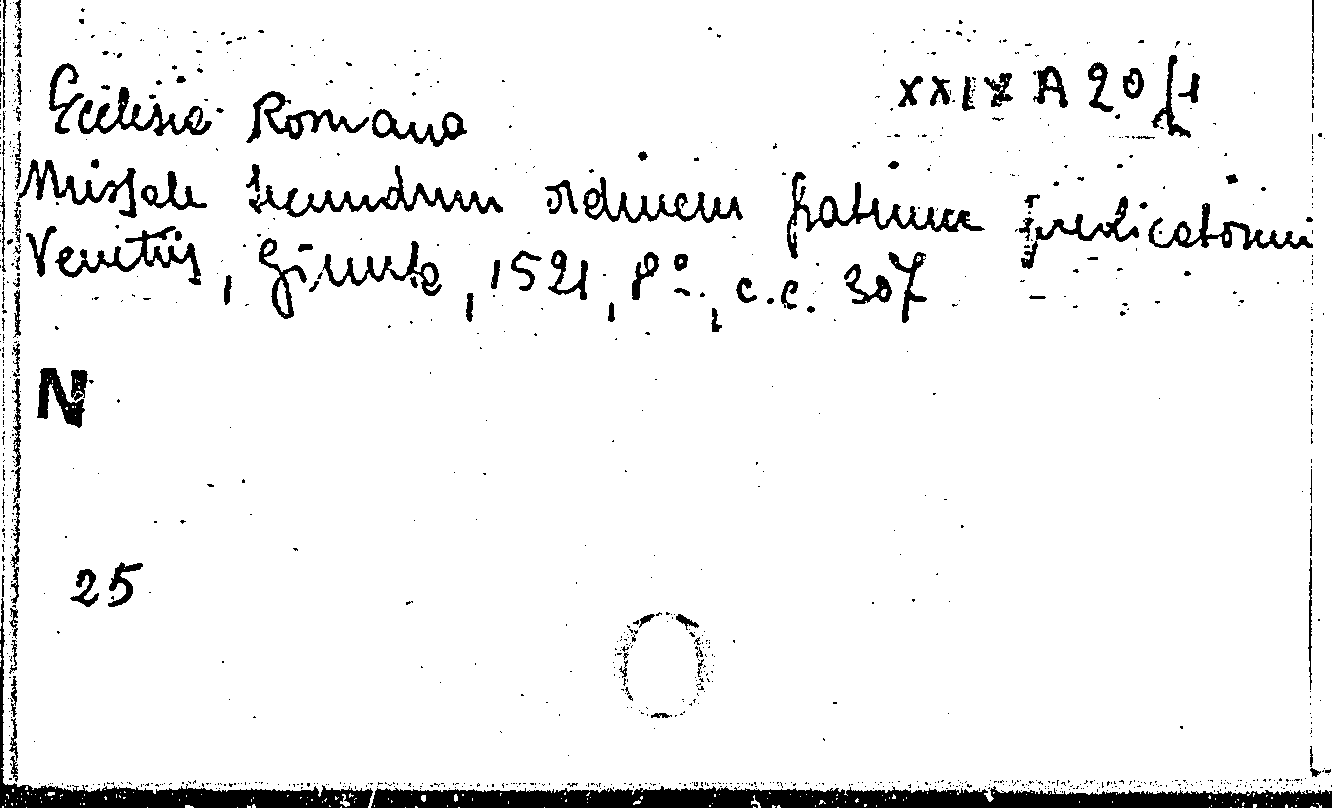 Ecclesia Romana XXIX A 20
Missale secundum ordinem fratrum predicatorum
Venetiis, Giunta, 1521, 8º, c.c. 307
N
25